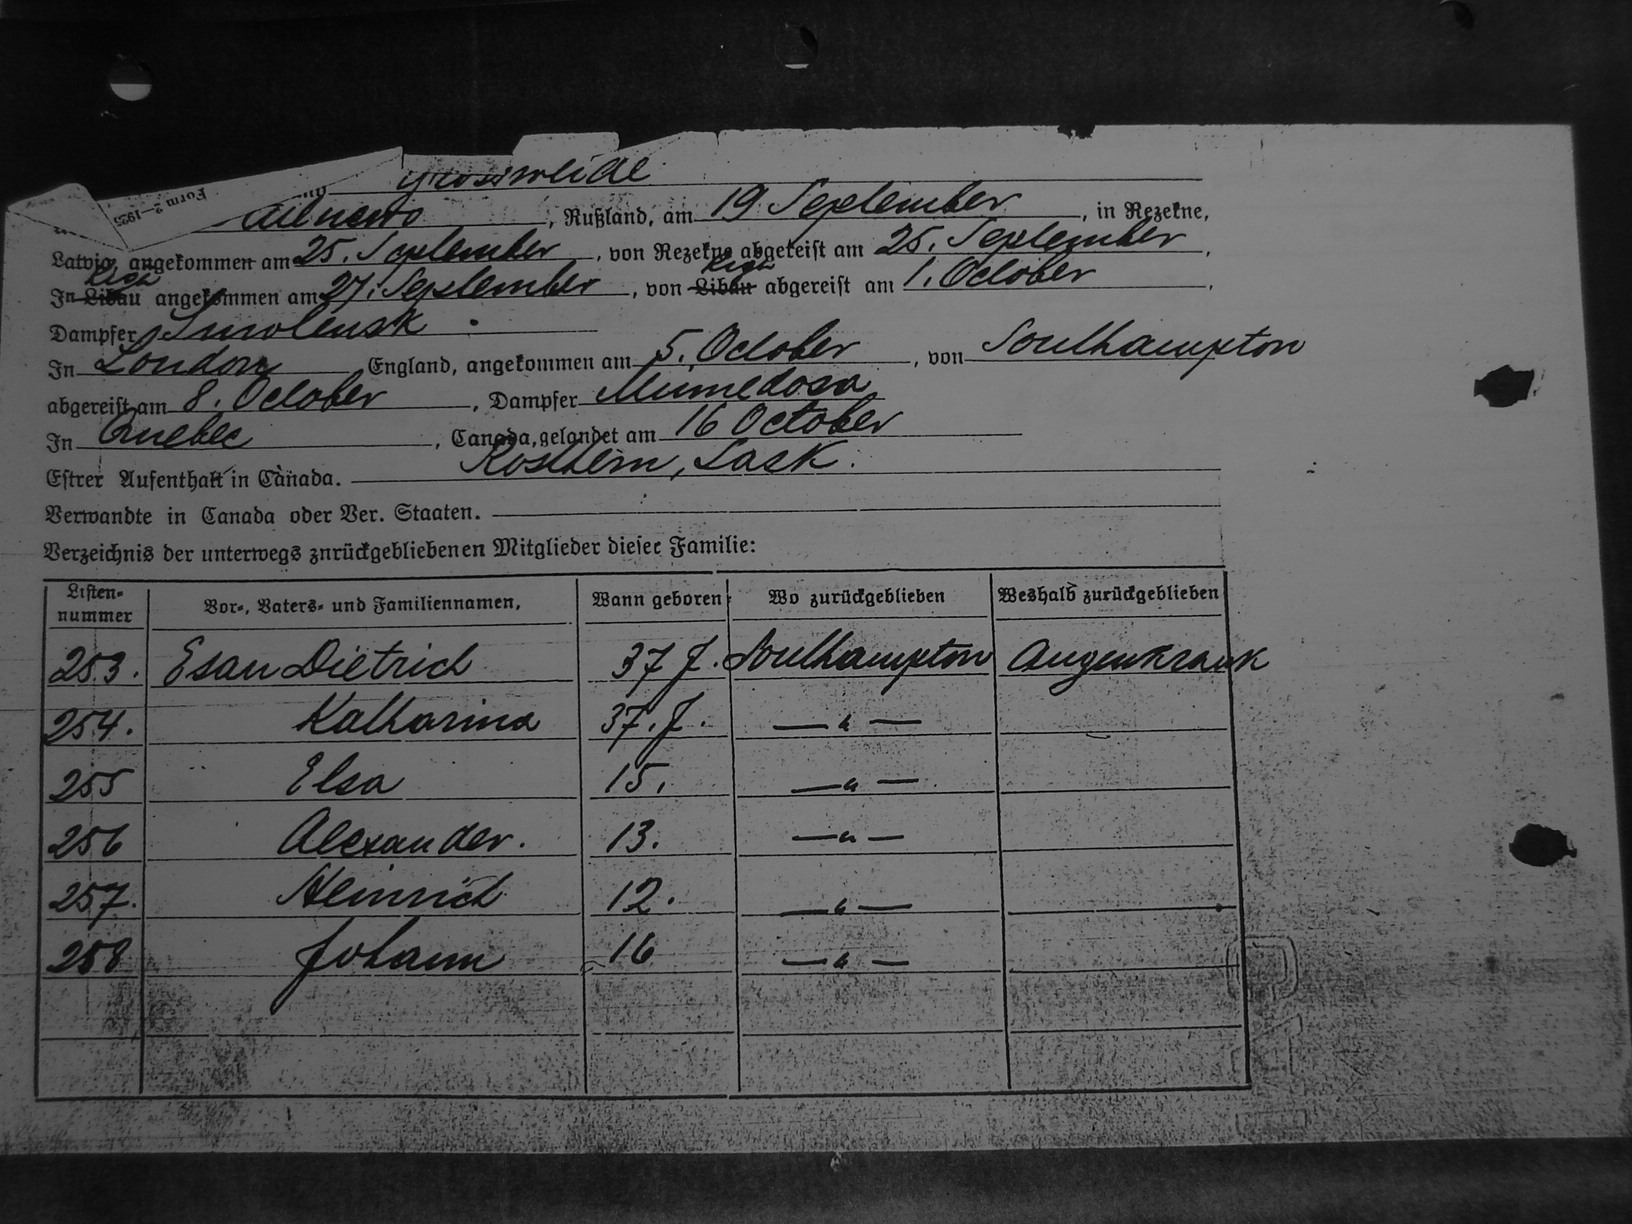 Grossweide
Form 2—1925
, Rußland, am 19 September, in Rezekne,
Latvia, angekommen am 25. September, von Rezekne abgereist am 25. September,
Riga Riga
In Libau angekommen am 27. September, von Libau abgereist am 1. October,
Dampfer Smolensk.
In London England, angekommen am 5. October, von Southampton
abgereist am 8. October, Dampfer Minnedosa
In Quebec, Canada, gelandet am 16 October
Estrer Aufenthalt in Canada. Rosthern, Sask.
Verwandte in Canada oder Ver. Staaten.
Verzeichnis der unterwegs znrückgebliebenen Mitglieder dieser Familie:
Listen-nummer Vor-, Vaters- und Familiennamen, Wann geboren Wo zurückgeblieben Weshalb zurückgeblieben
253. Esau Dietrich 37 J. Southampton Augenkrank
254. Katharina 37. J. —"—
255 Elsa 15. —"—
256 Alexander. 13. —"—
257. Heinrich 12. —"—
258 Johann 16 —"—